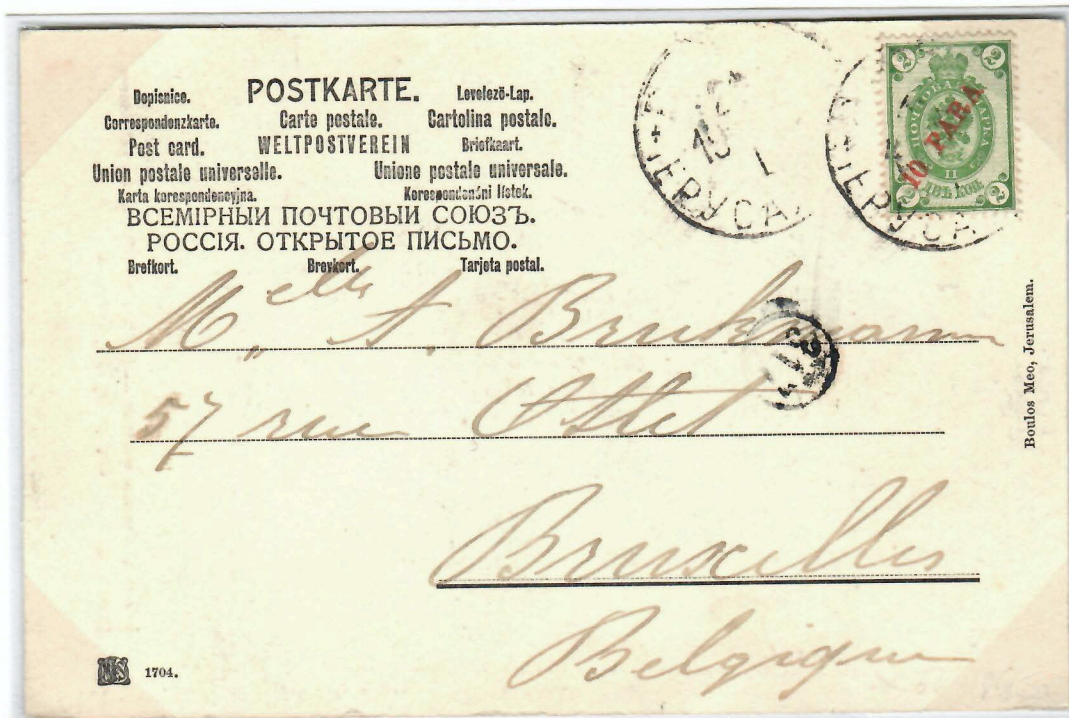 POSTKARTE.
Dopisnice. Levelező-Lap.
Correspondenzkarte. Carte postale. Cartolina postale.
Post card. WELTPOSTVEREIN Briefkaart.
Union postale universelle. Unione postale universale.
Karta korespondencyjna. Korespondenční lístek.
ВСЕМІРНЫИ ПОЧТОВЫИ СОЮЗЪ.
РОССІЯ. ОТКРЫТОЕ ПИСЬМО.
Brefkort. Brevkort. Tarjeta postal.
ІЕРУСА
ІЕРУСА
2 2
ПОЧТОВАЯ МАРКА
10 PARA
ДВѢ КОП.
2 2
Melle A. Bruckmann
57 rue Ottlet
Bruxelles
Belgique
Boulos Meo, Jerusalem.
1704.